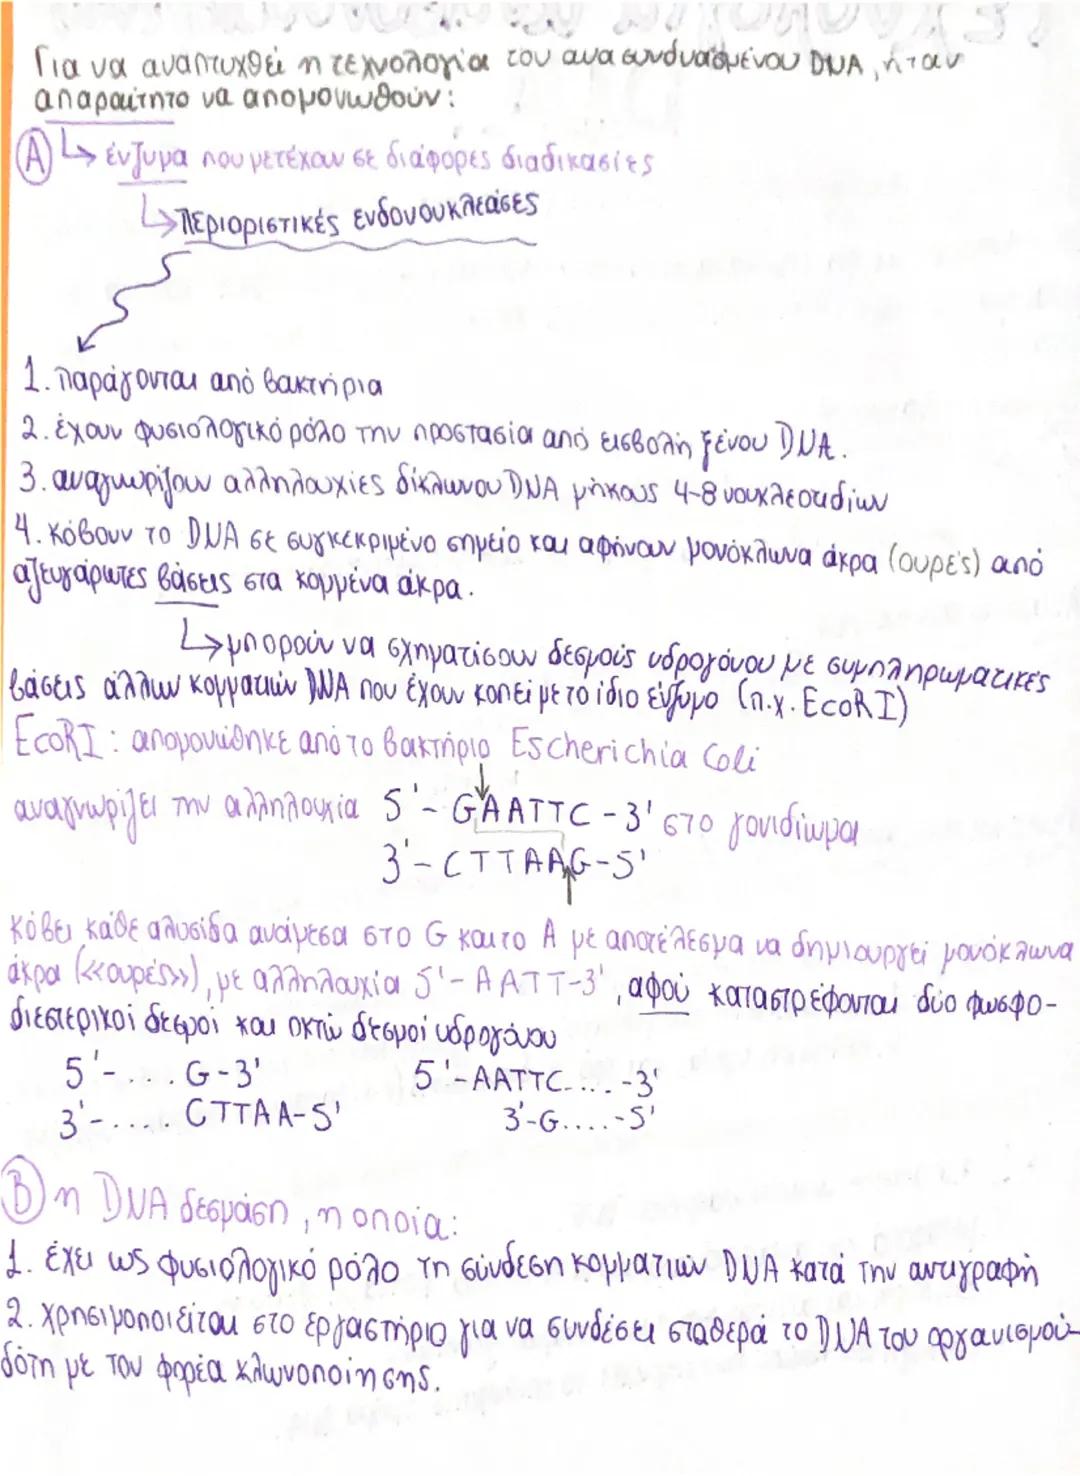 Για να αναπτυχθεί η τεχνολογία του ανασυνδυασμένου DNA, ήταν
απαραίτητο να απομονωθούν:
Α ↳ ένζυμα που μετέχουν σε διάφορες διαδικασίες
↳ Περιοριστικές ενδονουκλεάσες
1. παράγονται από βακτήρια
2. έχουν φυσιολογικό ρόλο την προστασία από εισβολή ξένου DNA.
3. αναγνωρίζουν αλληλουχίες δίκλωνου DNA μήκους 4-8 νουκλεοτιδίων
4. κόβουν το DNA σε συγκεκριμένο σημείο και αφήνουν μονόκλωνα άκρα (ουρές) από
αζευγάρωτες βάσεις στα κομμένα άκρα.
↳ μπορούν να σχηματίσουν δεσμούς υδρογόνου με συμπληρωματικές
βάσεις άλλων κομματιών DNA που έχουν κοπεί με το ίδιο ένζυμο (π.χ. EcoRI)
EcoRI: απομονώθηκε από το βακτήριο Escherichia Coli
αναγνωρίζει την αλληλουχία 5'- GAATTC - 3' στο γονιδίωμα
3'- CTTAAG-5'
κόβει κάθε αλυσίδα ανάμεσα στο G και το A με αποτέλεσμα να δημιουργεί μονόκλωνα
άκρα (<<ουρές>>), με αλληλουχία 5'- AATT-3', αφού καταστρέφονται δύο φωσφο-
διεστερικοί δεσμοί και οκτώ δεσμοί υδρογόνου
5'-.... G-3' 5'-AATTC.....-3'
3'-..... CTTAA-5' 3'-G.....-5'
Β η DNA δεσμάση, η οποία:
1. έχει ως φυσιολογικό ρόλο τη σύνδεση κομματιών DNA κατά την αντιγραφή
2. χρησιμοποιείται στο εργαστήριο για να συνδέσει σταθερά το DNA του οργανισμού
δότη με τον φορέα κλωνοποίησης.